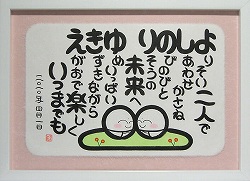 よりそい二人で
しあわせ かさね
のびのびと
りそうの
未来へ
ゆめいっぱい
きずきながら
えがおで楽しく
いつまでも